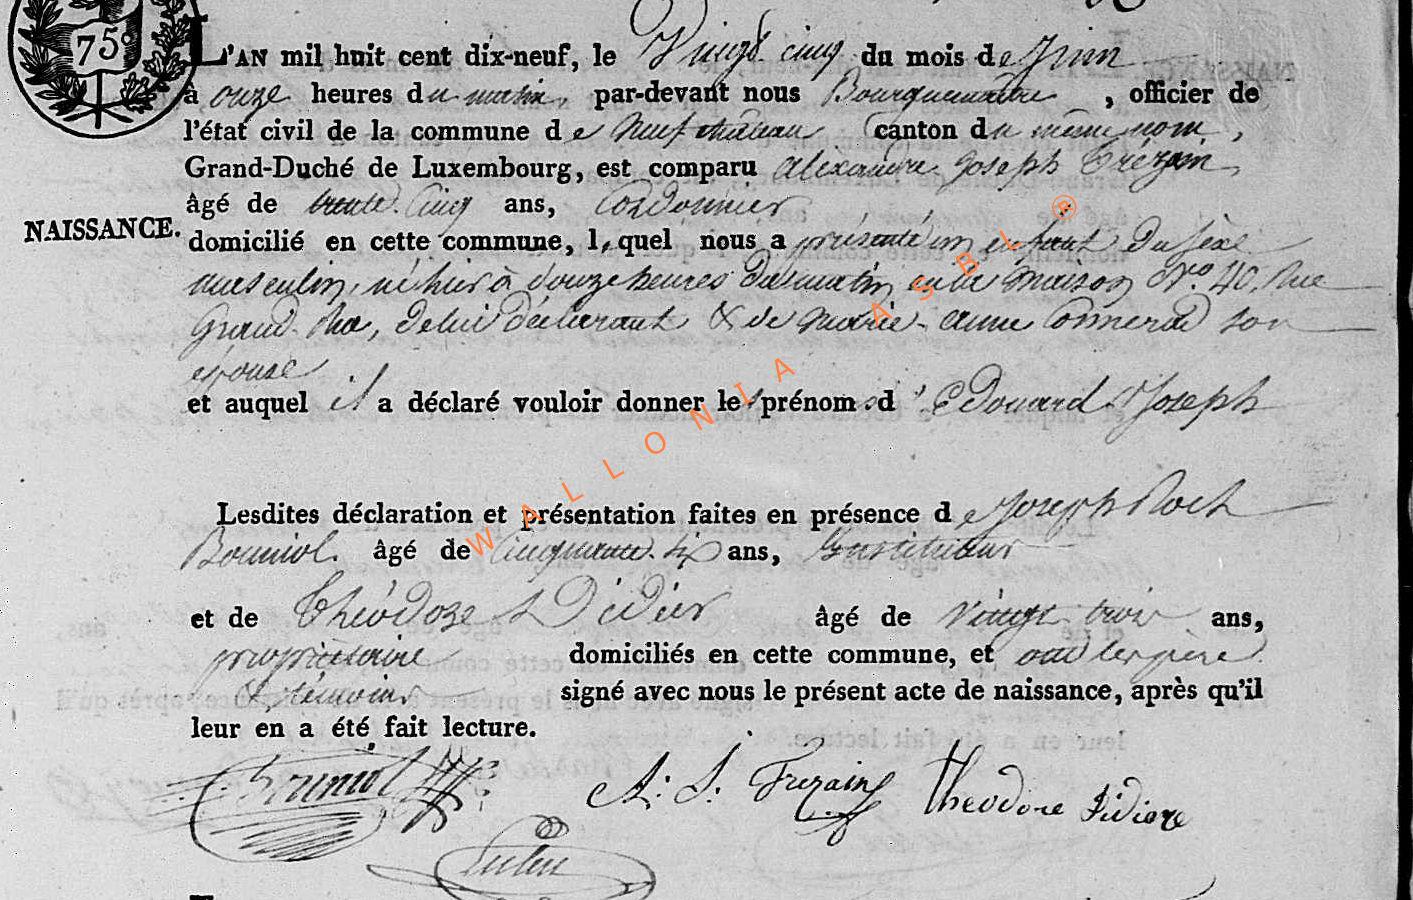 75c
L'AN mil huit cent dix-neuf, le Vingt cinq du mois de Juin
à onze heures du matin, par-devant nous , officier de
l'état civil de la commune de Neufchâteau canton du même nom,
Grand-Duché de Luxembourg, est comparu Alexandre Joseph Trézain,
âgé de trente Cinq ans, Cordonnier
NAISSANCE.
domicilié en cette commune, lequel nous a présenté un enfant du sexe
masculin, né hier à douze heures du matin en sa maison No. 40, Rue
Grand Rue, de lui déclarant & de Marie-anne son
épouse
et auquel il a déclaré vouloir donner les prénoms d'Edouard Joseph
Lesdites déclaration et présentation faites en présence de Joseph Roch
Bouniol âgé de Cinquante six ans, Instituteur
et de Théodore Didier âgé de vingt trois ans,
propriétaire domiciliés en cette commune, et ont les père
& témoins signé avec nous le présent acte de naissance, après qu'il
leur en a été fait lecture.
A: J. Trezain Theodore Didier
WALLONIA ASBL ®